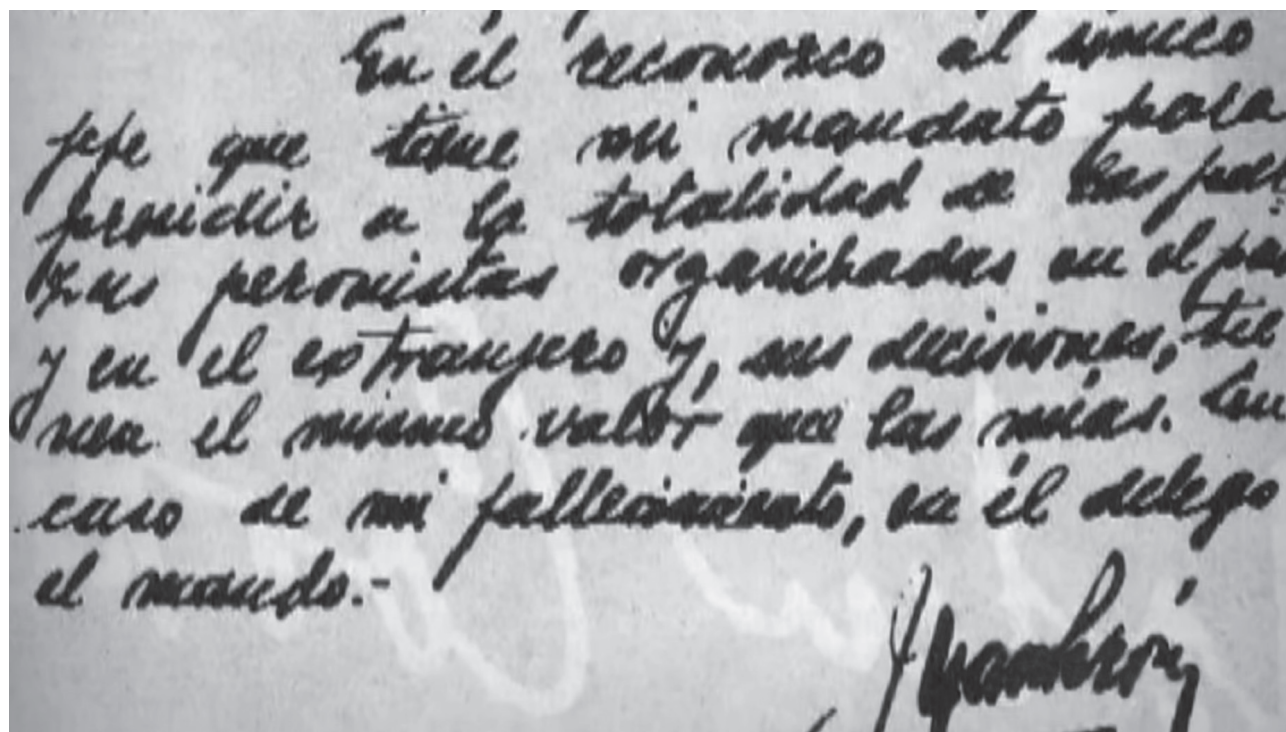 En él reconozco al único
jefe que tiene mi mandato para
presidir a la totalidad de las fuer
zas peronistas organizadas en el país
y en el extranjero y, sus decisiones, tie
nen el mismo valor que las mías. En
caso de mi fallecimiento, en él delego
el mando.-
Juan Perón